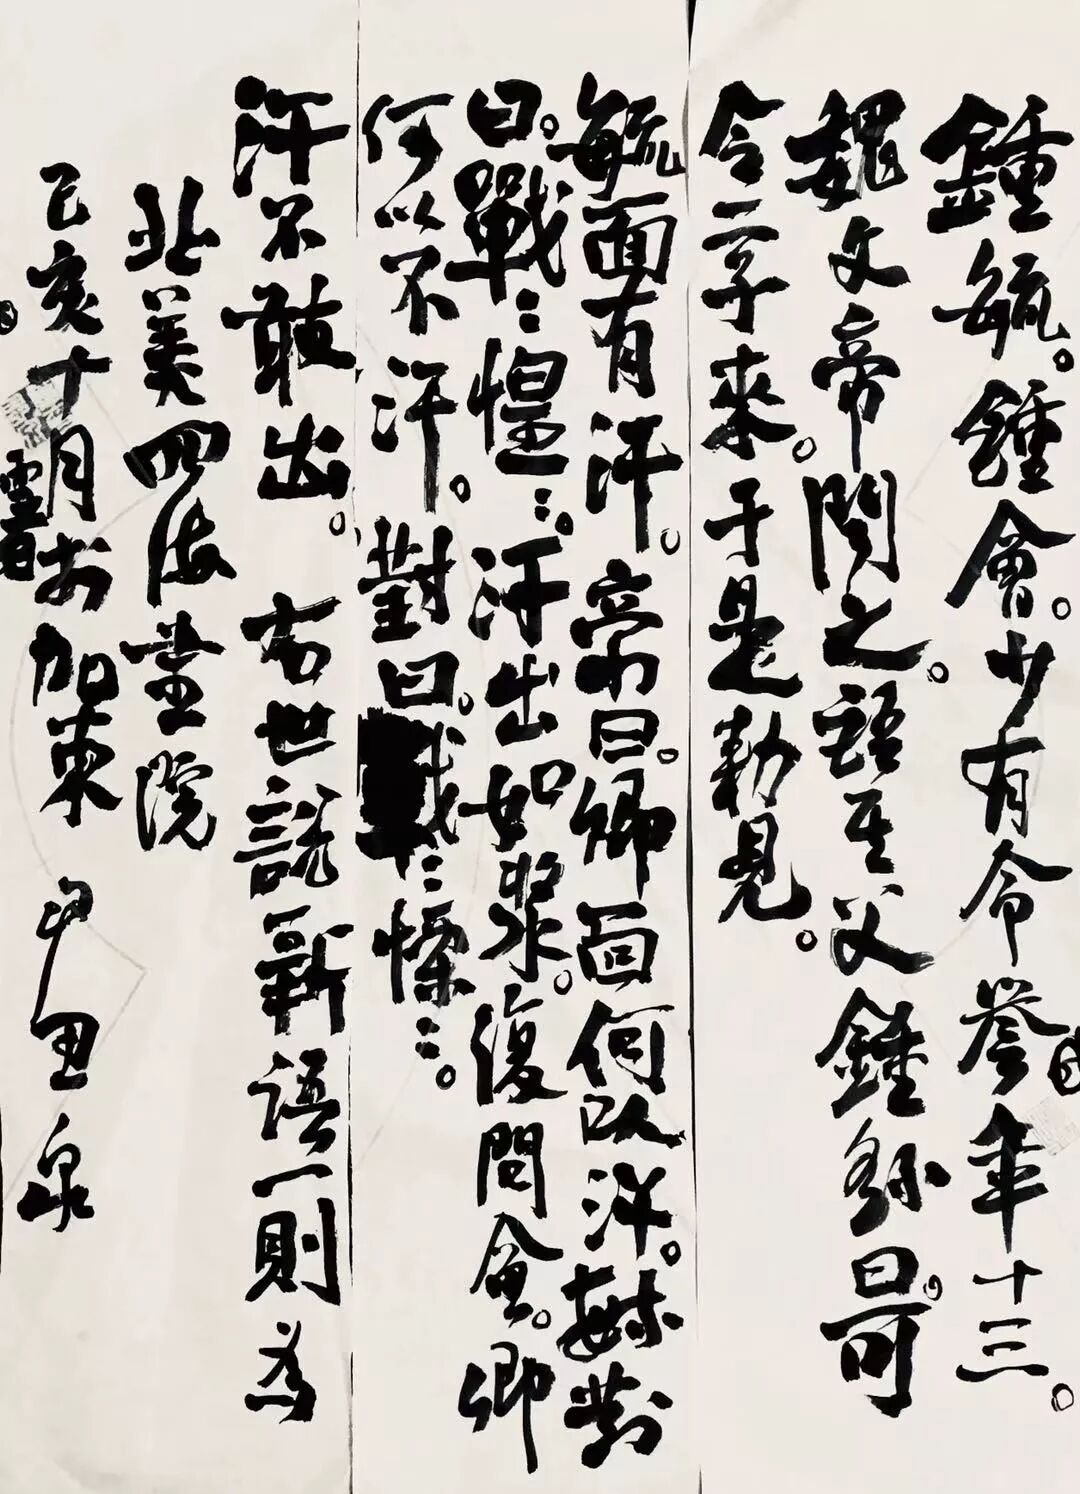 鍾毓。鍾會。少有令譽年十三。
魏文帝聞之。語其父鍾繇曰。可
令二子來。于是勅見。
毓面有汗。帝曰。卿面何以汗。毓對
曰。戰〻惶〻。汗出如漿。復問會。卿
何以不汗。對曰。戰〻慄〻。
汗不敢出。 右世說新語一則為
北美四海書院
己亥十月於加東